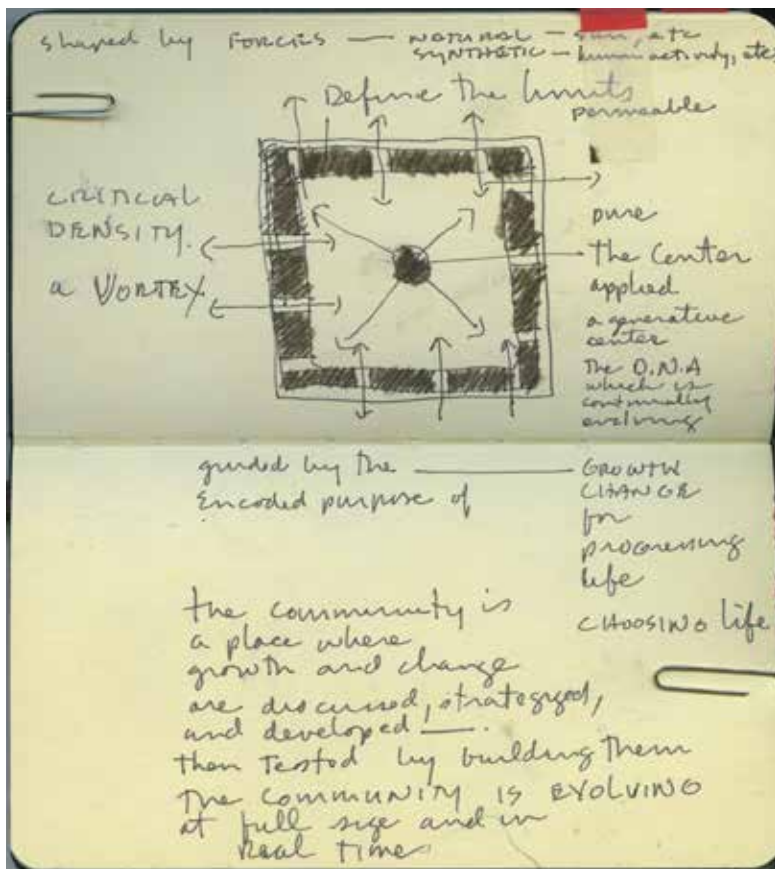 shaped by FORCES — NATURAL — sun, etc
SYNTHETIC — human activity, etc
Define the limits
permeable
CRITICAL
DENSITY.
a VORTEX
pure
the center
applied
a generative
center
The D.N.A
which is
continually
evolving
guided by the ——— GROWTH
Encoded purpose of CHANGE
for
progressing
life
CHOOSING life
the community is
a place where
growth and change
are discussed, strategyzed,
and developed —.
then tested by building them
The COMMUNITY IS EVOLVING
at full size and in
Real time